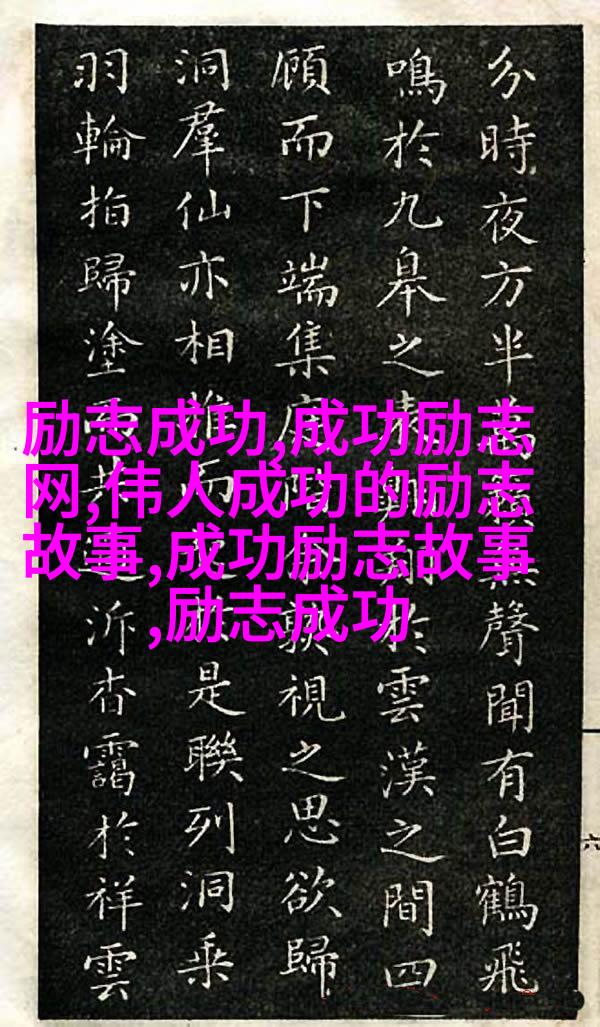 励志成功,成功励志
网,伟人成功的励志
故事,成功励志故事
,励志成功
分時夜方半萬無聲聞有白鶴飛
鳴於九皋之表於雲漢之間四
顧而下端集視之思欲歸
洞羣仙亦相離而是聯列洞乘
羽輪拍歸塗泝杳靄於祥雲
六